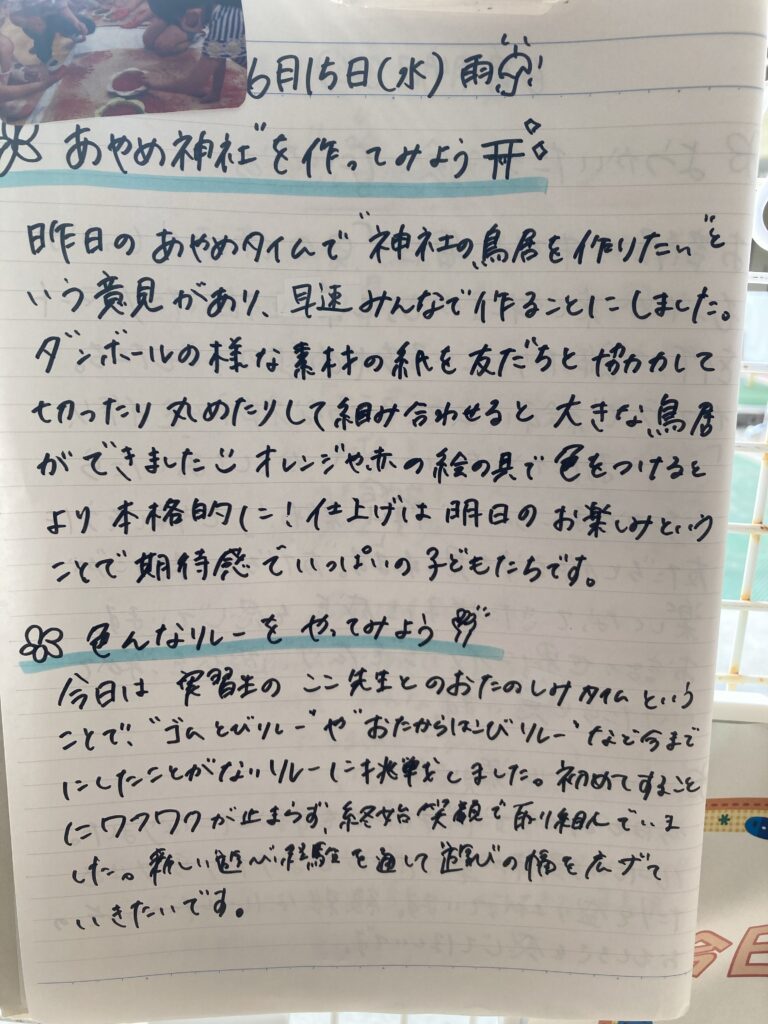 6月15日(水) 雨
あやめ神社"を作ってみよう
昨日のあやめタイムで"神社の鳥居を作りたい"と
いう意見があり、早速みんなで作ることにしました。
ダンボールの様な素材の紙を友だちと協力して
切ったり丸めたりして組み合わせると大きな鳥居
ができました オレンジや赤の絵の具で色をつけると
より本格的に!仕上げは明日のお楽しみという
ことで期待感でいっぱいの子どもたちです。
色んなリレーをやってみよう
今日は実習生のここ先生とのおたのしみタイムという
ことで、"ゴムとびリレー"や"おたからはこびリレー"など今まで
にしたことがないリレーに挑戦しました。初めてすること
にワクワクが止まらず、終始笑顔で取り組んでいま
した。新しい遊び経験を通して遊びの幅を広げて
いきたいです。
今日